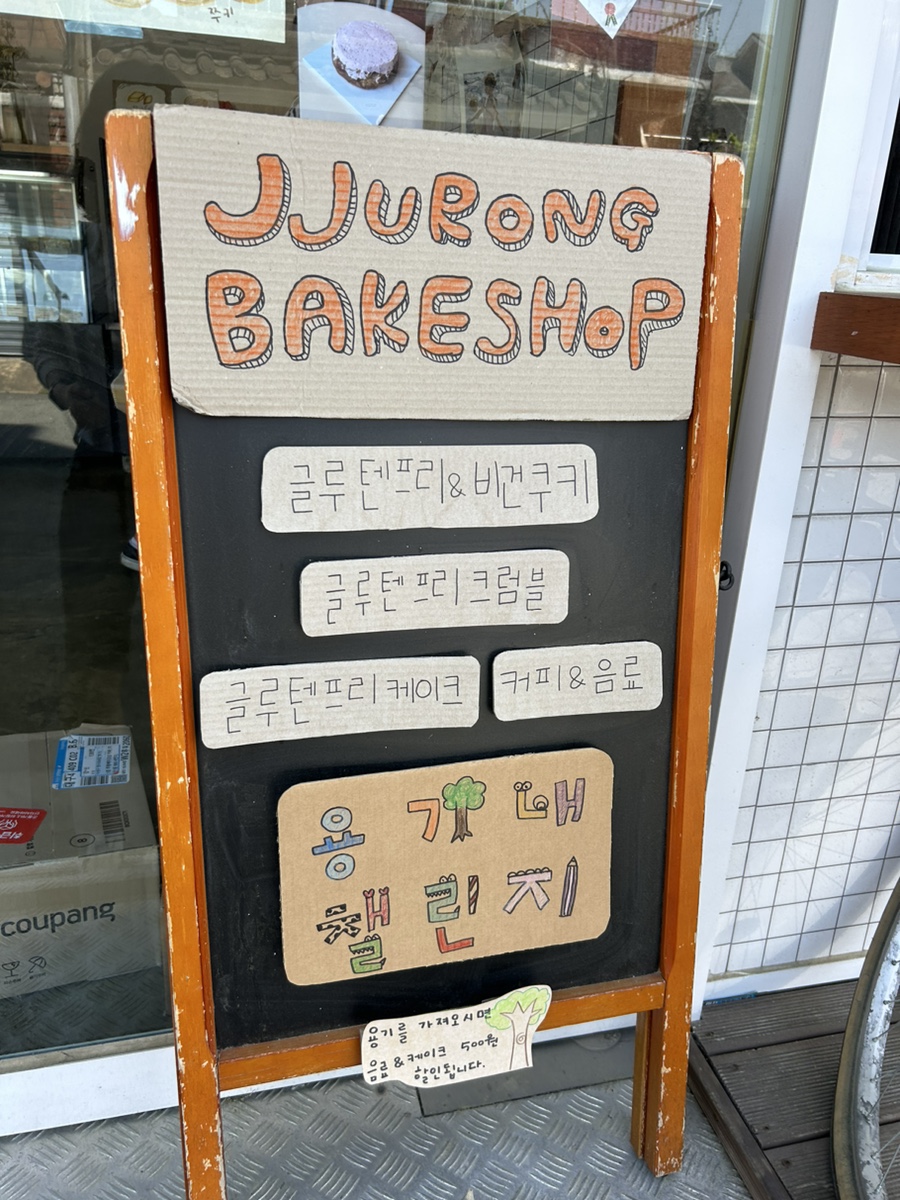 쭈키
JJURONG
BAKESHOP
글루텐프리&비건쿠키
글루텐프리크럼블
글루텐프리케이크
커피&음료
용기내
챌린지
용기를 가져오시면
음료&케이크 500원
할인됩니다.
coupang